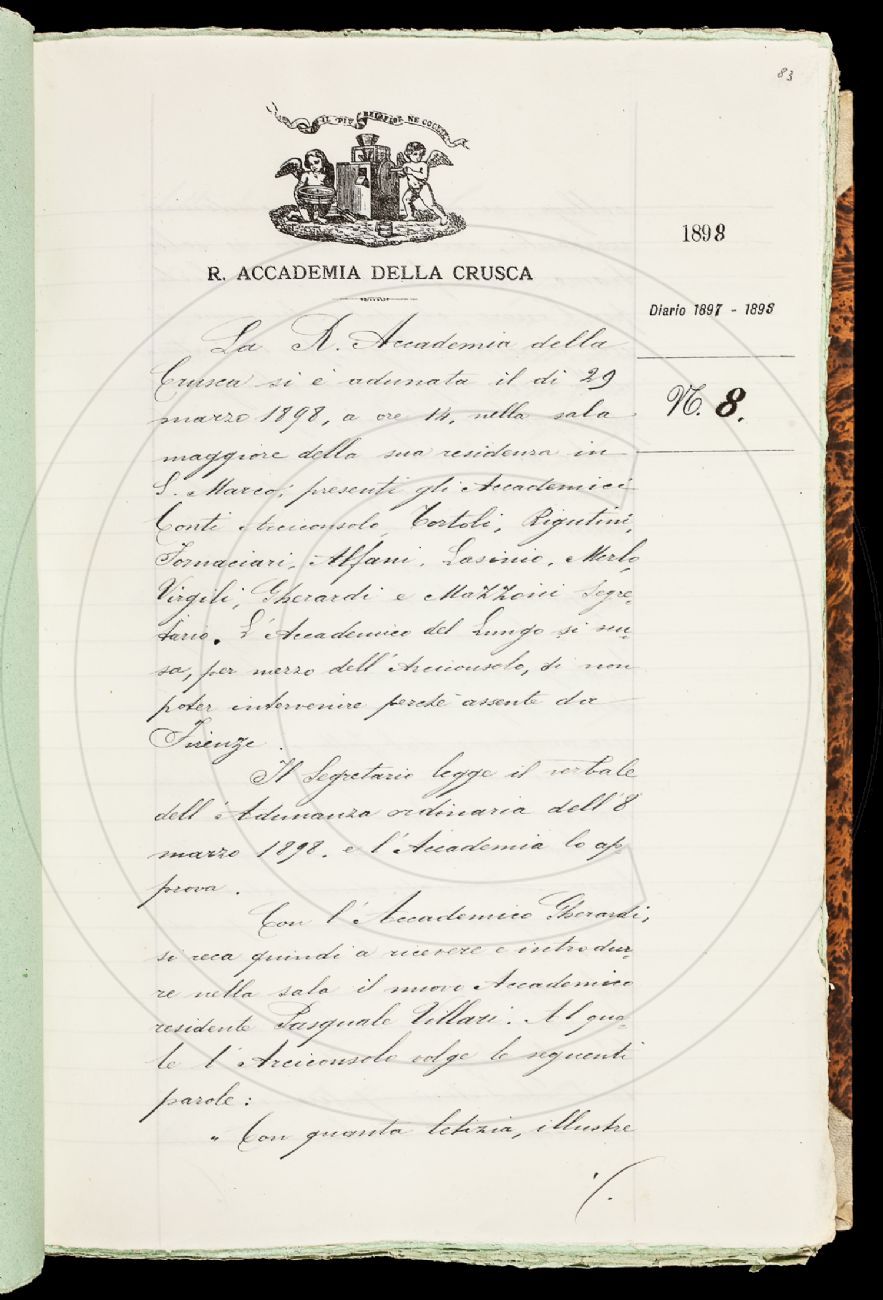 83
IL PIÙ BEL FIOR NE COGLIE
R. ACCADEMIA DELLA CRUSCA
1898
Diario 1897 - 1898
N. 8.
La R. Accademia della
Crusca si è adunata il dì 29
marzo 1898, a ore 14, nella sala
maggiore della sua residenza in
S. Marco; presenti gli Accademici
Conti Arciconsolo, Tortoli, Rigutini,
Fornaciari, Alfani, Lasinio, Merlo,
Virgili, Gherardi e Mazzoni Segre-
tario. L'Accademico Del Lungo si scu-
sa, per mezzo dell'Arciconsolo, di non
poter intervenire perchè assente da
Firenze.
Il Segretario legge il verbale
dell'Adunanza ordinaria dell'8
marzo 1898, e l'Accademia lo ap-
prova.
Con l'Accademico Gherardi,
si reca quindi a ricevere e introdur-
re nella sala il nuovo Accademico
residente Pasquale Villari. Al qua-
le l'Arciconsolo volge le seguenti
parole:
" Con quanta letizia, illustre